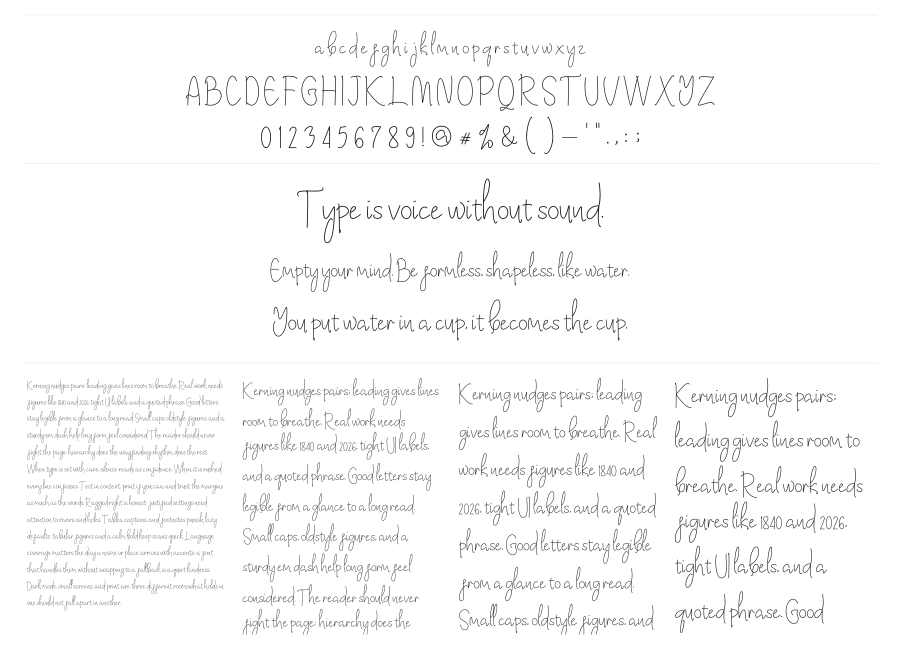 abcdefghijklmnopqrstuvwxyz
ABCDEFGHIJKLMNOPQRSTUVWXYZ
0123456789!@#%&()—'".,:;
Type is voice without sound.
Empty your mind. Be formless. shapeless. like water.
You put water in a cup. it becomes the cup.
Kerning nudges pairs: leading gives lines room to breathe. Real work needs
figures like 1840 and 2026. tight UI labels. and a quoted phrase. Good letters
stay legible from a glance to a long read. Small caps. oldstyle figures. and a
sturdy em dash help long form feel considered. The reader should never
fight the page: hierarchy does the wayfinding. rhythm does the rest.
When type is set with care. silence reads as confidence. When it is rushed
every line confesses. Test in context. print if you can. and trust the margins
as much as the words. Ragged right is honest. justified settings need
attention to rivers and holes. Tables. captions. and footnotes punish lazy
defaults: tabular figures and a calm bold keep scans quick. Language
coverage matters the day a name or place arrives with accents. a font
that handles them without swapping to a fallback is a quiet kindness.
Dark mode. small screens. and print are three different rooms: what holds in
one should not fall apart in another.
Kerning nudges pairs: leading gives lines
room to breathe. Real work needs
figures like 1840 and 2026. tight UI labels.
and a quoted phrase. Good letters stay
legible from a glance to a long read.
Small caps. oldstyle figures. and a
sturdy em dash help long form feel
considered. The reader should never
fight the page: hierarchy does the
Kerning nudges pairs: leading
gives lines room to breathe. Real
work needs figures like 1840 and
2026. tight UI labels. and a quoted
phrase. Good letters stay legible
from a glance to a long read.
Small caps. oldstyle figures. and
Kerning nudges pairs:
leading gives lines room to
breathe. Real work needs
figures like 1840 and 2026.
tight UI labels. and a
quoted phrase. Good